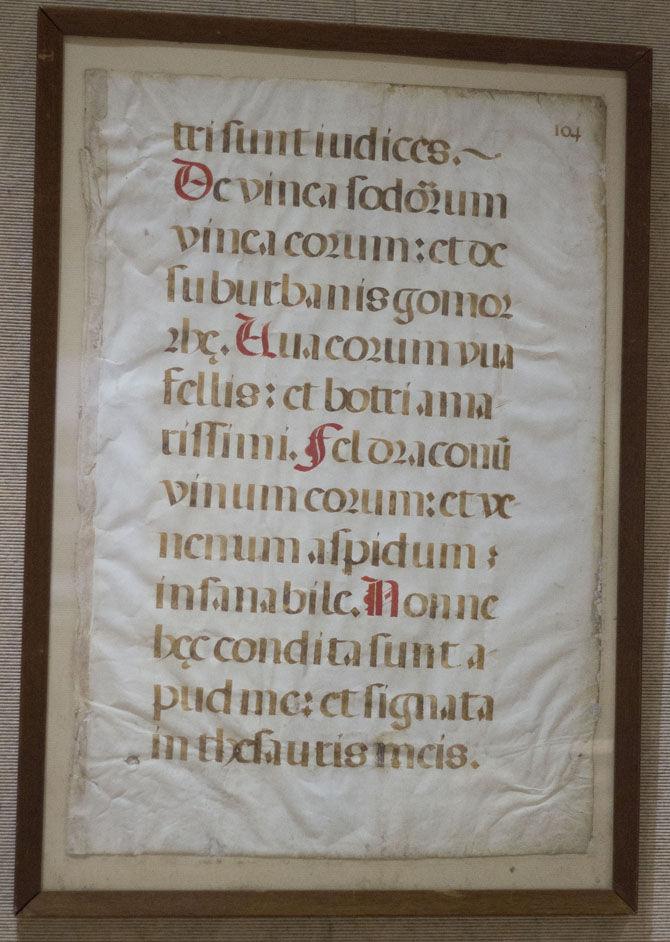 104
tri sunt iudices.~
De vinea sodoꝝum
vinea eorum: et de
suburbanis gomor
rhę. Uua eorum vua
fellis: et botri ama
rissimi. Fel draconū
vinum eorum: et ve
nenum aspidum :
insanabile. Nonne
hęc condita sunt a
pud me: et signata
in thesauris meis.